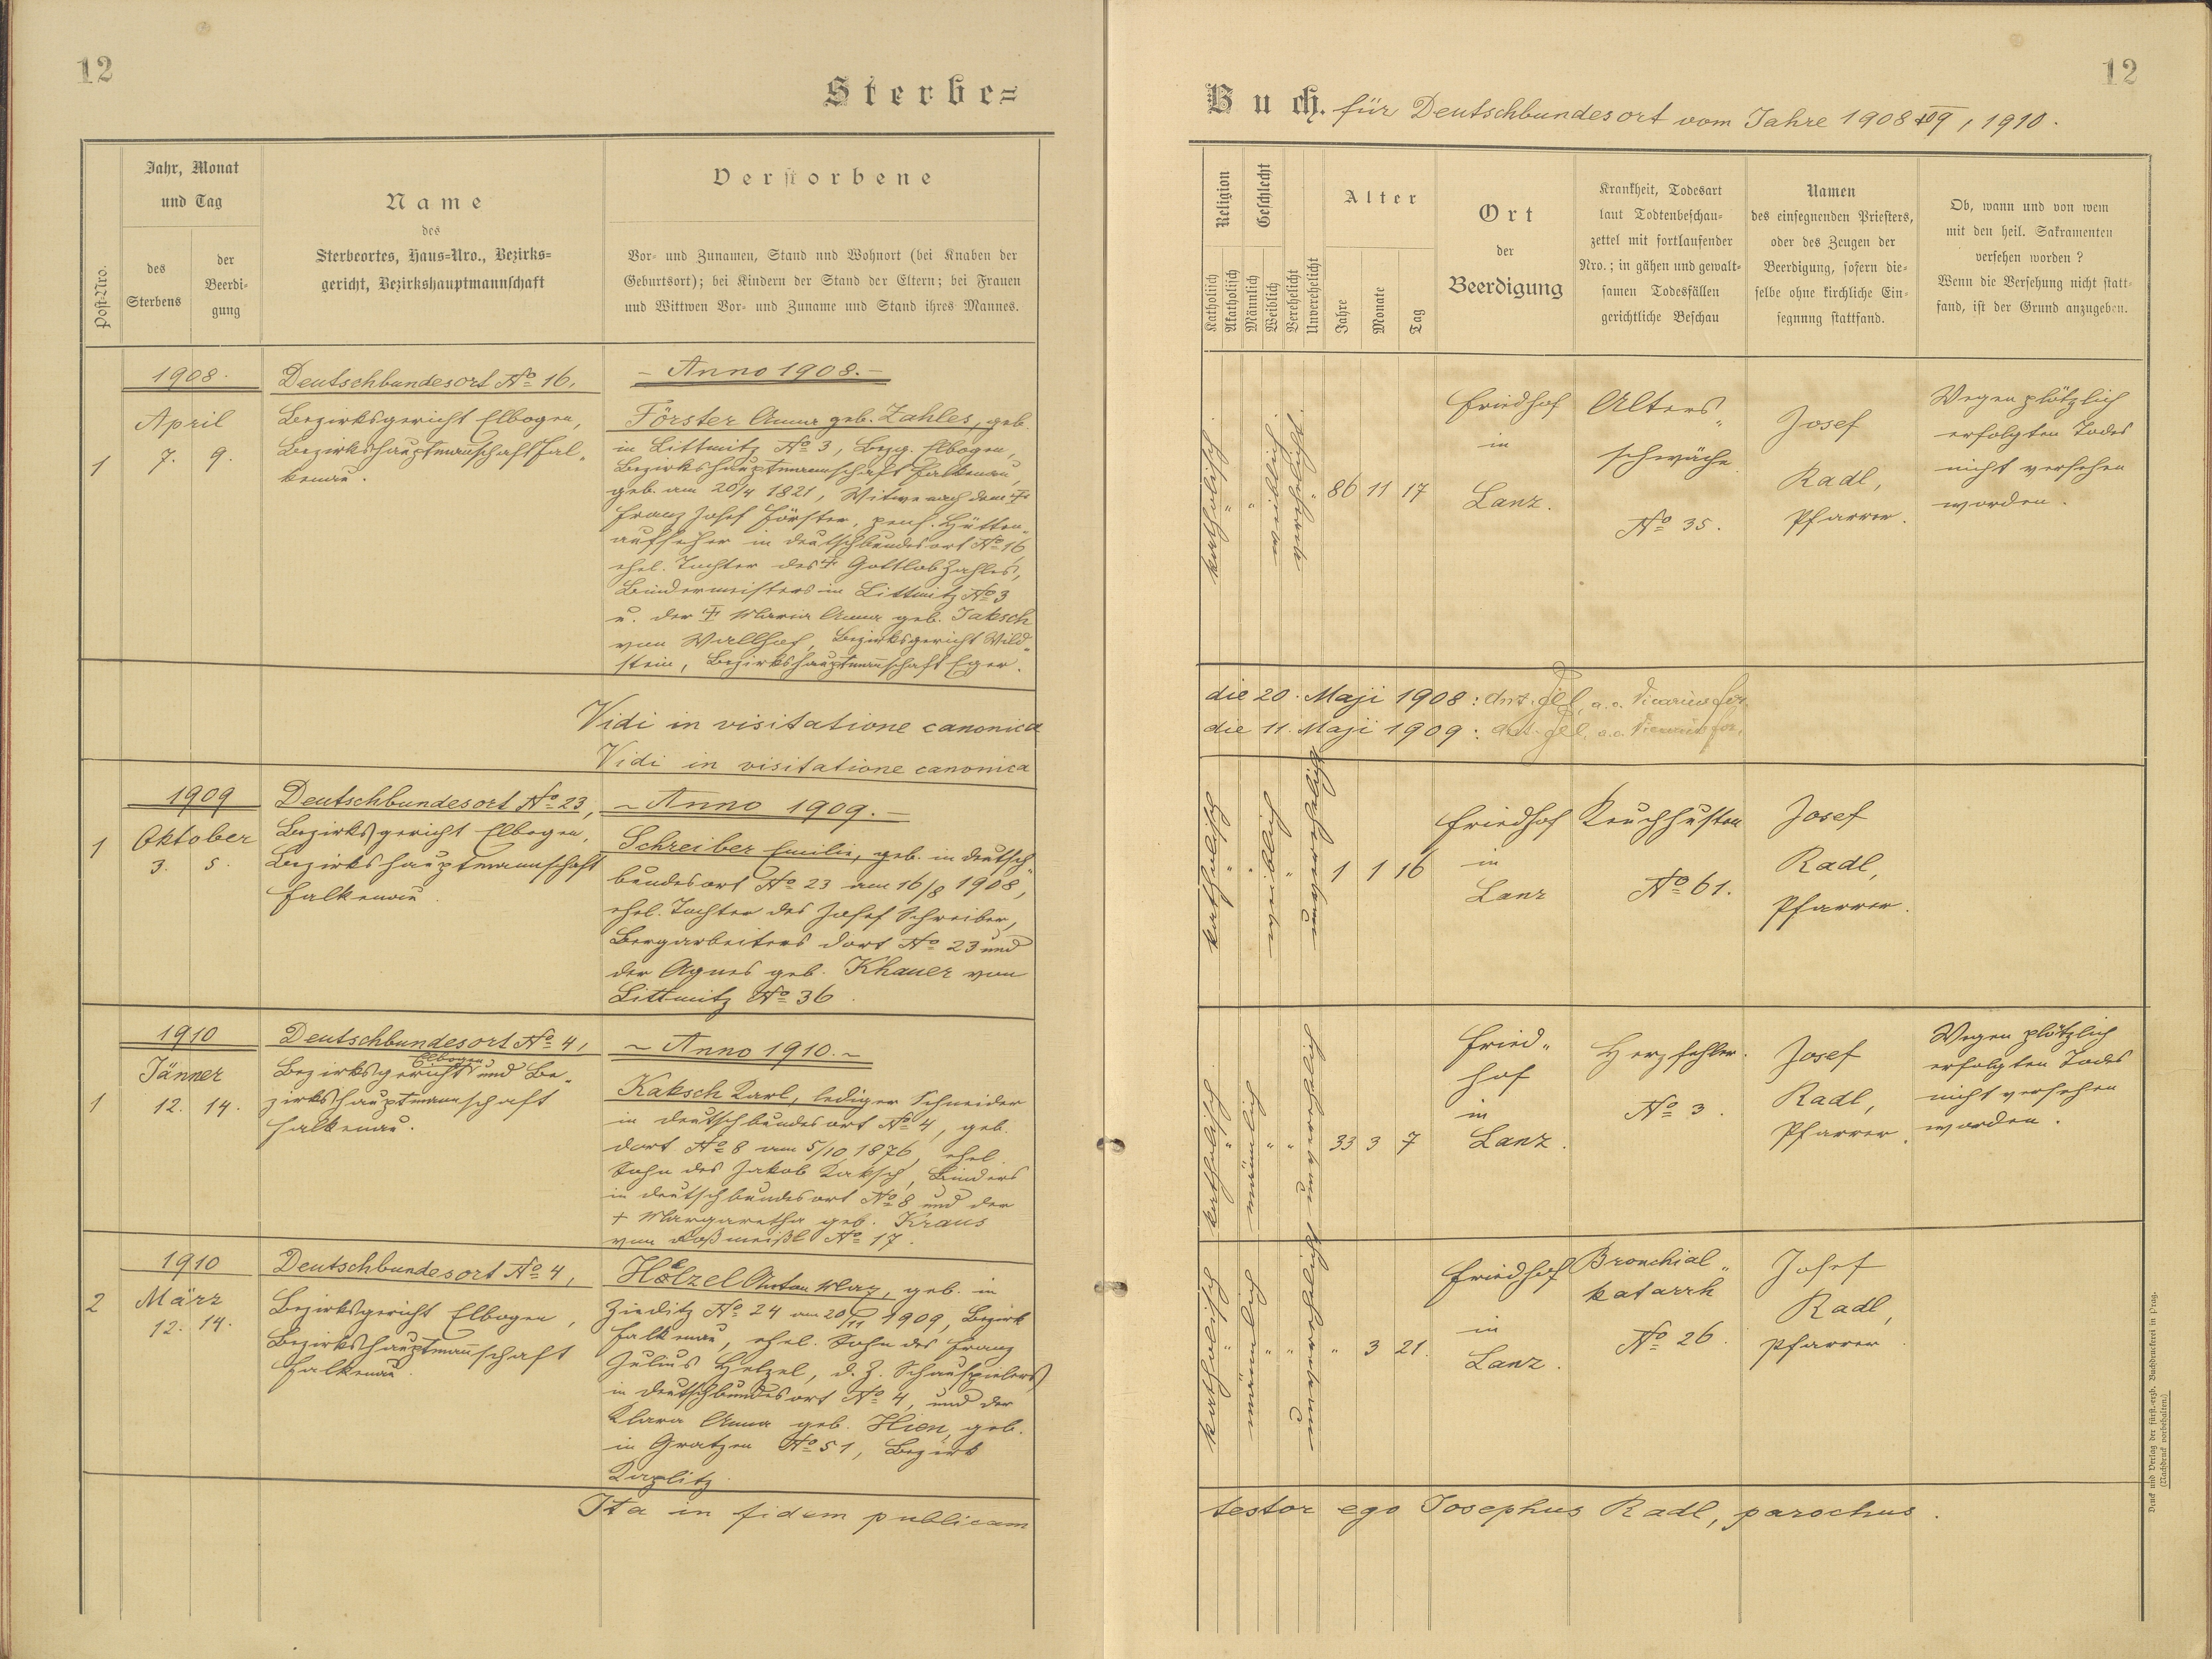 12
Sterbe=
Jahr, Monat
und Tag
Name
des
Sterbeortes, Haus=Nro., Bezirks=
gericht, Bezirkshauptmannschaft
Verstorbene
Post=Nro.
des
Sterbens
der
Beerdi=
gung
Vor= und Zunamen, Stand und Wohnort (bei Knaben der
Geburtsort); bei Kindern der Stand der Eltern; bei Frauen
und Wittwen Vor= und Zuname und Stand ihres Mannes.
1908.
Deutschbundesort No 16,
- Anno 1908. -
1
April
7. 9.
Bezirksgericht Elbogen,
Bezirkshauptmannschaft Fal-
kenau.
Förster Anna geb. Zahles, geb.
in Littmitz No 3, Bezg. Elbogen,
Bezirkshauptmannschaft Falkenau,
geb. am 20/4 1821, Witwe nach dem †
Franz Josef Förster, pens. Hütten-
aufseher in Deutschbundesort No 16
ehel. Tochter des † Gottlob Zahles,
Bindermeisters in Littmitz No 3
u. der † Maria Anna geb. Jaksch
von Wallhof, Bezirksgericht Wild-
stein, Bezirkshauptmannschaft Eger.
Vidi in visitatione canonica
Vidi in visitatione canonica
1909
Deutschbundesort No 23,
~ Anno 1909. -
1
Oktober
3. 5.
Bezirksgericht Elbogen,
Bezirkshauptmannschaft
Falkenau.
Schreiber Emilie, geb. in Deutsch-
bundesort No 23 am 16/8 1908,
ehel. Tochter des Josef Schreiber,
Bergarbeiters dort No 23 und
der Agnes geb. Khauer von
Littmitz No 36.
1910
Deutschbundesort No 4,
~ Anno 1910. ~
1
Jänner
12. 14.
Elbogen
Bezirksgericht und Be-
zirkshauptmannschaft
Falkenau.
Kaksch Karl, lediger Schneider
in Deutschbundesort No 4, geb.
dort No 8 am 5/10 1876, ehel.
Sohn des Jakob Kaksch, Binders
in Deutschbundesort No 8 und der
† Margaretha geb. Kraus
von Roßmeißl No 17.
1910
Deutschbundesort No 4,
2
März
12. 14.
Bezirksgericht Elbogen,
Bezirkshauptmannschaft
Falkenau.
Hölzel Anton Max, geb. in
Zieditz No 24 am 20/11 1909, Bezirk
Falkenau, ehel. Sohn des Franz
Julius Helzel, d. Z. Schauspielers
in Deutschbundesort No 4, und der
Klara Anna geb. Hien, geb.
in Gratzen No 51, Bezirk
Kaplitz.
Ita in fidem publicam
12
Buch. für Deutschbundesort vom Jahre 1908, 09, 1910.
Religion
Geschlecht
Katholiich
Akatholiich
Männlich
Weiblich
Verehelicht
Unverehelicht
Alter
Jahre
Monate
Tag
Ort
der
Beerdigung
Krankheit, Todesart
laut Todtenbeschau=
zettel mit fortlaufender
Nro.; in gähen und gewalt=
samen Todesfällen
gerichtliche Beschau
Namen
des einsegnenden Priesters,
oder des Zeugen der
Beerdigung, sofern die=
selbe ohne kirchliche Ein=
segnung stattfand.
Ob, wann und von wem
mit den heil. Sakramenten
versehen worden?
Wenn die Versehung nicht statt=
fand, ist der Grund anzugeben.
katholisch
"
weiblich
verehelicht
86 11 17
Friedhof
in
Lanz.
Alters-
schwäche
No 35.
Josef
Radl,
Pfarrer.
Wegen plötzlich
erfolgten Todes
nicht versehen
worden.
die 20. Maji 1908: Ant. a. e. Vicarius for.
die 11. Maji 1909: Ant. a. e. Vicarius for.
katholisch
"
weiblich
"
unverehelicht
1 1 16
Friedhof
in
Lanz
Keuchhusten
No 61.
Josef
Radl,
Pfarrer.
katholisch
"
männlich
" "
unverehelicht
33 3 7
Fried-
hof
in
Lanz.
Herzfehler.
No 3.
Josef
Radl,
Pfarrer.
Wegen plötzlich
erfolgten Todes
nicht versehen
worden.
katholisch
"
männlich
" "
unverehelicht
" 3 21.
Friedhof
in
Lanz.
Bronchial-
katarrh
No 26.
Josef
Radl,
Pfarrer.
testor ego Josephus Radl, parochus.
Druck und Verlag der fürst.=erzb. Buchdruckerei in Prag.
(Nachdruck vorbehalten.)